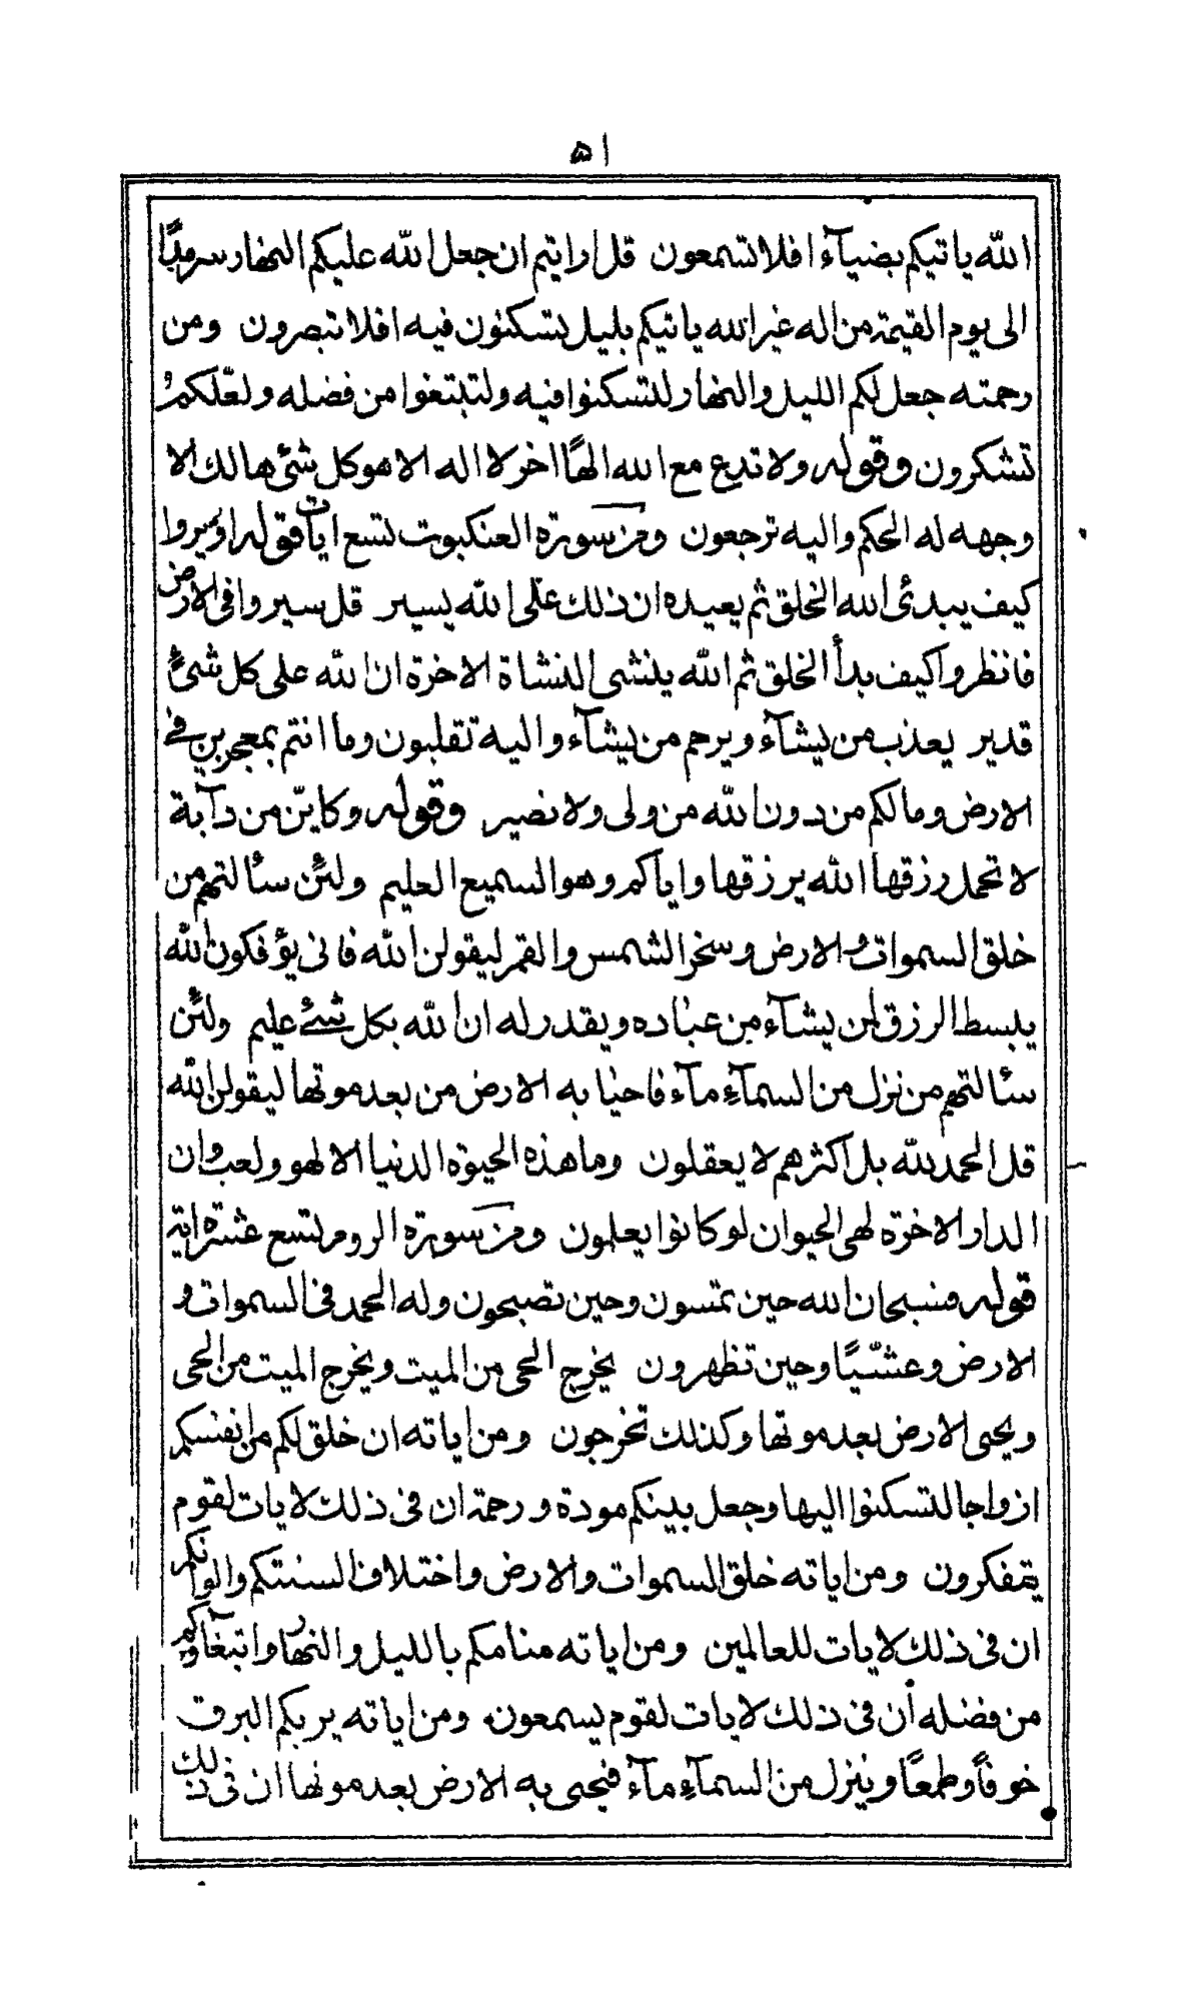 ٥١
الله ياتيكم بضيآء افلا تسمعون قل ارايتم ان جعل الله عليكم النهار سرمدًا
الى يوم القيمة من اله غير الله ياتيكم بليل تسكنون فيه افلا تبصرون ومن
رحمته جعل لكم الليل والنهار لتسكنوا فيه ولتبتغوا من فضله ولعلّكم
تشكرون وقوله ولا تدع مع الله الهًا اخر لا اله الا هو كل شئ هالك الا
وجهه له الحكم واليه ترجعون ومن سورة العنكبوت تسع ايات قوله اولم يروا
كيف يبدئ الله الخلق ثم يعيده ان ذلك على الله يسير قل سيروا فى الارض
فانظروا كيف بدأ الخلق ثم الله ينشى النشاة الاخرة ان الله على كل شئ
قدير يعذب من يشآء ويرحم من يشآء واليه تقلبون وما انتم بمعجزين فى
الارض ومالكم من دون الله من ولى ولا نصير وقوله وكايّن من دآبة
لا تحمل رزقها الله يرزقها واياكم وهو السميع العليم ولئن سئالتهم من
خلق السموات والارض وسخر الشمس والقمر ليقولن الله فانى يؤفكون الله
يبسط الرزق لمن يشآء من عباده ويقدر له ان الله بكل شئ عليم ولئن
سئالتهم من نزل من السمآء مآء فاحيا به الارض من بعد موتها ليقولن الله
قل الحمد لله بل اكثرهم لا يعقلون وما هذه الحيوة الدنيا الا لهو ولعب وان
الدار الاخرة لهى الحيوان لو كانوا يعلمون ومن سورة الروم تسع عشرة اية
قوله فسبحان الله حين تمسون وحين تصبحون وله الحمد فى السموات و
الارض وعشيًا وحين تظهرون يخرج الحى من الميت ويخرج الميت من الحى
ويحيى الارض بعد موتها وكذلك تخرجون ومن اياته ان خلق لكم من انفسكم
ازواجا لتسكنوا اليها وجعل بينكم مودة ورحمة ان فى ذلك لايات لقوم
يتفكرون ومن اياته خلق السموات والارض واختلاف السنتكم والوانكم
ان فى ذلك لايات للعالمين ومن اياته منامكم بالليل والنهار وابتغآؤكم
من فضله ان فى ذلك لايات لقوم يسمعون ومن اياته يريكم البرق
خوفًا وطمعًا وينزل من السمآء مآء فيحيى به الارض بعد موتها ان فى ذلك